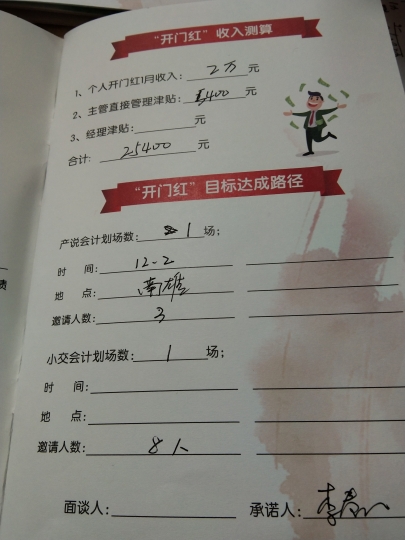 “开门红”收入测算
1、个人开门红1月收入：2万元
2、主管直接管理津贴：5400元
3、经理津贴：元
合计：25400元
“开门红”目标达成路径
产说会计划场数：1场；
时 间：12-2
地 点：南雄
邀请人数：3
小交会计划场数：1场；
时 间：
地 点：
邀请人数：8人
面谈人： 承诺人：李